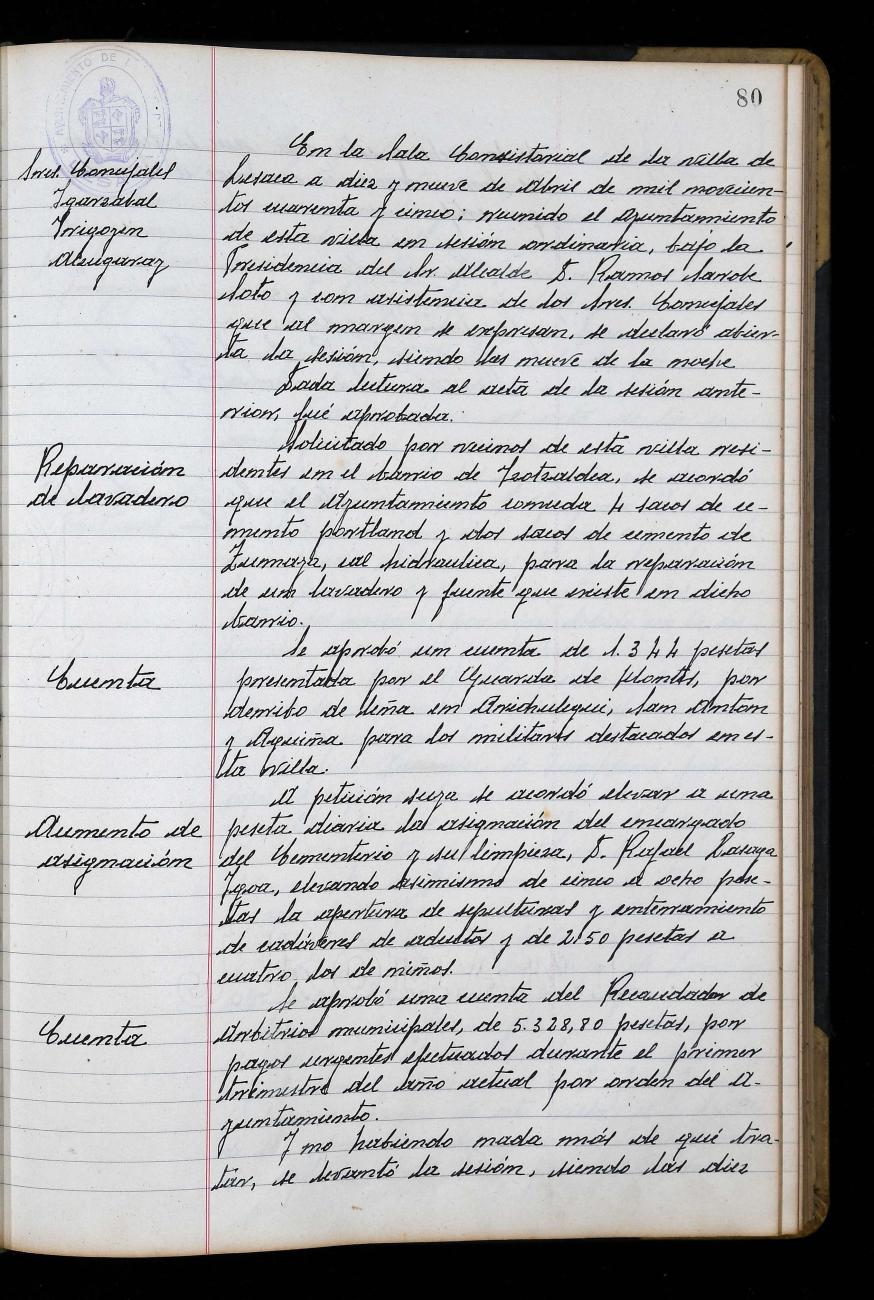 80
En la Sala Consistorial de la villa de
Lesaca a diez y nueve de Abril de mil novecien-
tos cuarenta y cinco; reunido el Ayuntamiento
de esta villa en sesión ordinaria, bajo la
Presidencia del Sr. Alcalde D. Ramos Sarobe
Soto y con asistencia de los Sres. Concejales
que al margen se expresan, se declaró abier-
ta la sesión, siendo las nueve de la noche
Sres. Concejales
Igarzabal
Irigoyen
Almgaraz
Dada lectura al acta de la sesión ante-
rior, fué aprobada.
Reparación
de lavadero
Solicitado por vecinos de esta villa resi-
dentes en el barrio de Zotzaldea, se acordó
que el Ayuntamiento conceda 4 sacos de ce-
mento portland y dos sacos de cemento de
Zumaya, cal hidraulica, para la reparación
de un lavadero y fuente que existe en dicho
barrio.
Cuenta
Se aprobó un cuenta de 1.344 pesetas
presentada por el Guarda de Montes, por
derribo de leña en Arichulegui, San Antón
y Aguiña para los militares destacados en es-
ta villa.
Aumento de
asignación
A petición suya se acordó elevar a una
peseta diaria la asignación del encargado
del Cementerio y su limpieza, D. Rafael Lasaga
Igoa, elevando asimismo de cinco a ocho pese-
tas la apertura de sepulturas y enterramiento
de cadáveres de adultos y de 2'50 pesetas a
cuatro los de niños.
Cuenta
Se aprobó una cuenta del Recaudador de
Arbitrios municipales, de 5.328,80 pesetas, por
pagos urgentes efectuados durante el primer
trimestre del año actual por orden del A-
yuntamiento.
Y no habiendo nada más de qué tra-
tar, se levantó la sesión, siendo las diez